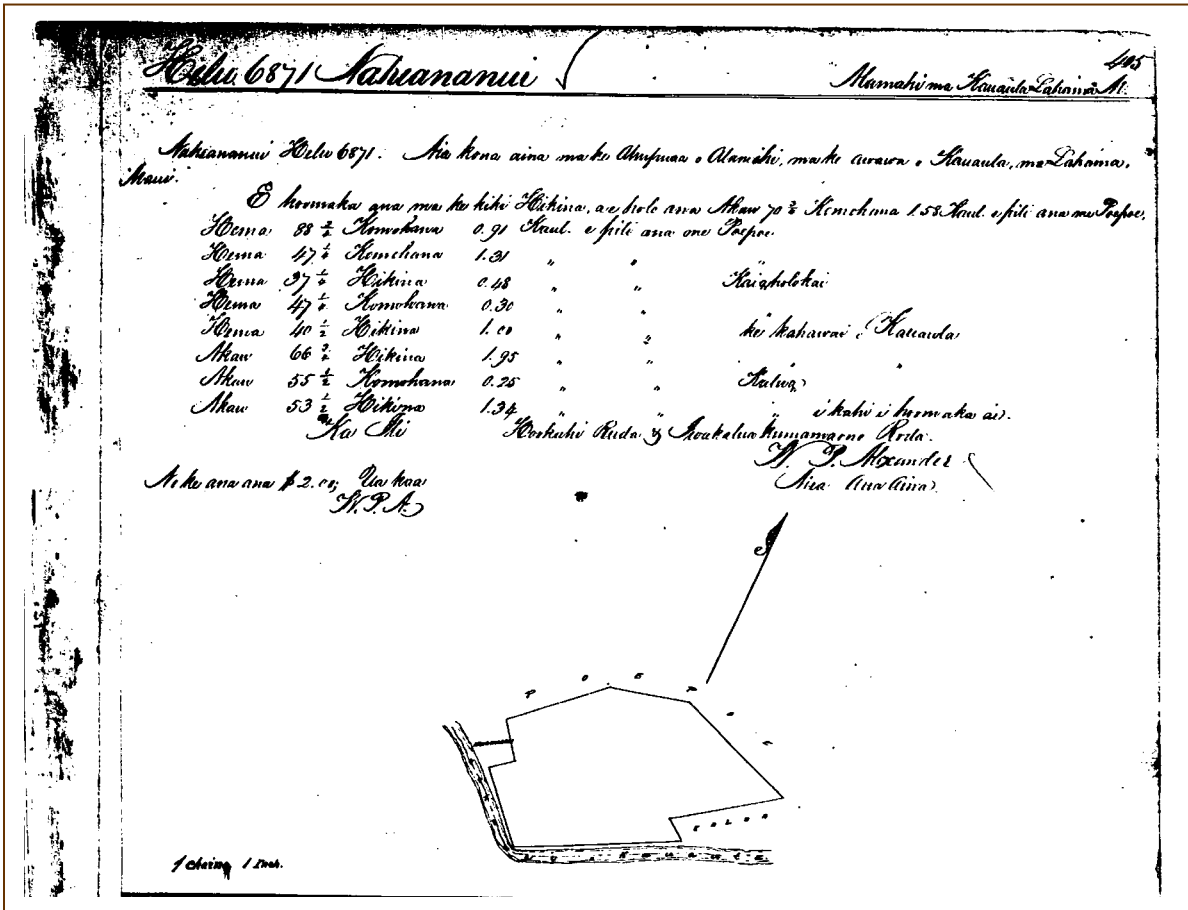 405
Helu 6871 Naheananui Alamihi ma Kauaula Lahaina M.
Naheananui Helu 6871. Aia kona aina ma ke Ahupuaa o Alamihi, ma ke awawa o Kauaula, ma Lahaina,
Maui.
E hoomaka ana ma ke kihi Hikina, a e holo ana Akau 70 Komohana 1.58 Kaul. e pili ana me Poepoe.
Hema 88 ½ Komohana 0.91 Kaul. e pili ana me Poepoe
Hema 47 Komohana 1.31 " "
Hema 37 Hikina 0.48 " "
Hema 47 Komohana 0.30 " "
Hema 40 ½ Hikina 1.00 " " ke kahawai o Kauaula
Akau 66 Hikina 1.95 " " "
Akau 55 ½ Komohana 0.25 " " Kalua
Akau 53 ½ Hikina 1.34 " " " i kahi i hoomaka ai.
Ka Ili Hookahi Ruda & Iwakaluakumamaono Roda.
W. P. Alexander
Nina Ana Aina
No ke ana ana $2.00, Ua kaa
W. P. A.
P O E P O E
K A L U A
1 Chain, 1 Inch.